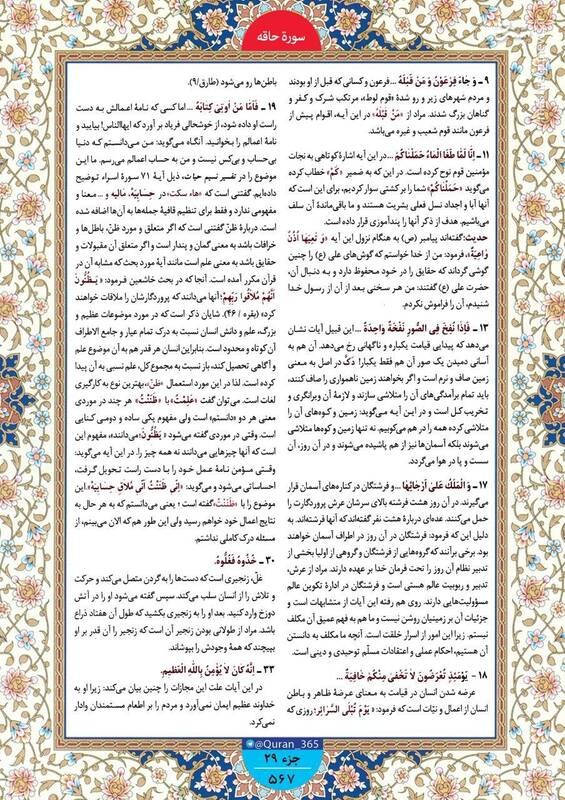 سورهٔ حاقه
۹ ـ وَ جَاءَ فِرعَوْنُ وَ مَنْ قَبْلَهُ ...فرعون و کسانی که قبل از او بودند
و مردم شهرهای زیر و رو شدهٔ «قوم لوط»، مرتکب شرک و کفر و
گناهان بزرگ شدند. مراد از «مَنْ قَبْلَهُ» در این آیه، اقوام پیش از
فرعون مانند قوم شعیب و غیره می‌باشد.
۱۱ ـ إِنَّا لَمَّا طَغَا الْمَاءُ حَمَلْنَاكُمْ ...در این آیه اشارهٔ کوتاهی به نجات
مؤمنین قوم نوح کرده است. در این که به ضمیر «كُمْ» خطاب کرده
می‌گوید «حَمَلْنَاكُمْ» شما را بر کشتی سوار کردیم، برای این است که
آنها آبا و اجداد نسل فعلی بشریت هستند و ما باقی‌ماندهٔ آن سلف
می‌باشیم. هدف از ذکر آنها را پندآموزی قرار داده است.
حدیث: گفته‌اند پیامبر (ص) به هنگام نزول این آیه «وَ تَعِيَهَا أُذُنٌ
وَاعِيَةٌ»، فرمود: من از خدا خواستم که گوش‌های علی (ع) را چنین
گوشی گرداند که حقایق را در خود محفوظ دارد و به دنبال آن،
حضرت علی (ع) گفتند: من هر سخنی بعد از آن از رسول خدا
شنیدم، آن را فراموش نکردم.
۱۳ ـ فَإِذَا نُفِخَ فِي الصُّورِ نَفْخَةٌ وَاحِدَةٌ ...این قبیل آیات نشان
می‌دهد که پیدایی قیامت یکباره و ناگهانی رخ می‌دهد. آن هم به
آسانی دمیدن یک صور آن هم فقط یکبار! دَکّ در اصل به معنی
زمین صاف و نرم است و اگر بخواهند زمین ناهمواری را صاف کنند،
باید تمام برآمدگی‌های آن را متلاشی سازند و لازمهٔ آن ویرانگری و
تخریب کل است و در این آیه می‌گوید: زمین و کوه‌های آن را
متلاشی کرده همه را در هم می‌کوبیم. نه تنها زمین و کوه‌ها متلاشی
می‌شوند بلکه آسمان‌ها نیز از هم پاشیده می‌شوند و در آن روز، آن
سست و پا در هوا می‌گردد.
۱۷ ـ وَ الْمَلَكُ عَلَىٰ أَرْجَائِهَا ...و فرشتگان در کناره‌های آسمان قرار
می‌گیرند. در آن روز هشت فرشته بالای سرشان عرش پروردگارت را
حمل می‌کنند. عده‌ای دربارهٔ هشت نفر گفته‌اند که آنها فرشته‌اند. به
دلیل این که فرمود: فرشتگان در آن روز در اطراف آسمان خواهند
بود. برخی برآنند که گروه‌هایی از فرشتگان و گروهی از اولیا بخشی از
تدبیر نظام آن روز را تحت فرمان خدا بر عهده دارند. مراد از عرش،
تدبیر و ربوبیت عالم هستی است و فرشتگان در ادارهٔ تکوین عالم
مسؤولیت‌هایی دارند. روی هم رفته این آیات از متشابهات است و
جزئیات آن بر زمینیان روشن نیست و ما هم به فهم عمیق آن مکلف
نیستم. زیرا این امور از اسرار خلقت است. آنچه ما مکلف به دانستن
آن هستیم، احکام عملی و اعتقادات مسلّم توحیدی و دینی است.
۱۸ ـ يَوْمَئِذٍ تُعْرَضُونَ لَا تَخْفَىٰ مِنْكُمْ خَافِيَةٌ ...
عرضه شدن انسان در قیامت به معنای عرضهٔ ظاهر و باطن
انسان از اعمال و نیّات است که فرمود: «يَوْمَ تُبْلَى السَّرَائِرُ؛ روزی که
باطن‌ها رو می‌شود (طارق/۹).
۱۹ ـ فَأَمَّا مَنْ أُوتِيَ كِتَابَهُ ...اما کسی که نامهٔ اعمالش به دست
راست او داده شود، از خوشحالی فریاد بر آورد که ایهاالناس! بیایید و
نامهٔ اعمالم را بخوانید. آنگاه می‌گوید: من می‌دانستم که دنیا
بی‌حساب و بی‌کس نیست و من به حساب اعمالم می‌رسم. ما این
موضوع را در تفسیر نسیم حیات، ذیل آیهٔ ۷۱ سورهٔ اسراء توضیح
داده‌ایم. گفتنی است که «هاء سکت» در حِسابِیَهْ، مالِیَه و ... معنا و
مفهومی ندارد و فقط برای تنظیم قافیهٔ جمله‌ها به آن‌ها اضافه شده
است. دربارهٔ ظنّ گفتنی است که اگر متعلق و مورد ظنّ، باطل‌ها و
خرافات باشد به معنی گمان و پندار است و اگر متعلق آن مقبولات و
حقایق باشد به معنی علم است مانند آیهٔ مورد بحث که مشابه آن در
قرآن مکرر آمده است. آنجا که در بحث خاشعین فرمود: «يَظُنُّونَ
أَنَّهُمْ مُلَاقُوا رَبِّهِمْ؛ آنها می‌دانند که پروردگارشان را ملاقات خواهند
کرد» (بقره / ۴۶). شایان ذکر است که در مورد موضوعات عظیم و
بزرگ، علم و دانش انسان نسبت به درک تمام عیار و جامع الاطراف
آن کوتاه و محدود است. بنابراین انسان هر قدر هم به آن موضوع علم
و آگاهی تحصیل کند، باز نسبت به مجموع کل، علم نسبی به آن پیدا
کرده است. لذا در این مورد استعمال «ظن»، بهترین نوع به کارگیری
لغات است. می‌توان گفت «عَلِمْتُ» با «ظَنَنْتُ» هر چند در موردی
معنی هر دو «دانستم» است ولی مفهوم یکی ساده و دومی کنایی
است. وقتی در موردی گفته می‌شود «يَظُنُّونَ؛ می‌دانند»، مفهوم این
است که آنها چیزهایی می‌دانند نه همه چیز را. در این آیه می‌گوید:
وقتی مؤمن نامهٔ عمل خود را با دست راست تحویل گرفت،
احساساتی می‌شود و می‌گوید: «إِنِّي ظَنَنْتُ أَنِّي مُلَاقٍ حِسَابِيَهْ» این
موضوع را با «ظَنَنْتُ» گفته است؛ یعنی می‌دانستم که به هر حال به
نتایج اعمال خود خواهم رسید ولی این طور هم که الان می‌بینم، از
مسئله درک کاملی نداشتم.
۳۰ ـ خُذُوهُ فَغُلُّوهُ.
غلّ، زنجیری است که دست‌ها را به گردن متصل می‌کند و حرکت
و تلاش را از انسان سلب می‌کند. سپس گفته می‌شود او را در آتش
دوزخ وارد کنید. بعد او را به زنجیری بکشید که طول آن هفتاد ذراع
باشد. مراد از طولانی بودن زنجیر آن است که زنجیر را آن قدر بر او
بپیچند که همهٔ وجودش را بپوشاند.
۳۳ ـ إِنَّهُ كَانَ لَا يُؤْمِنُ بِاللَّهِ الْعَظِيمِ.
در این آیات علت این مجازات را چنین بیان می‌کند: زیرا او به
خداوند عظیم ایمان نمی‌آورد و مردم را بر اطعام مستمندان وادار
نمی‌کرد.
@Quran_365
جزء ۲۹
۵۶۷